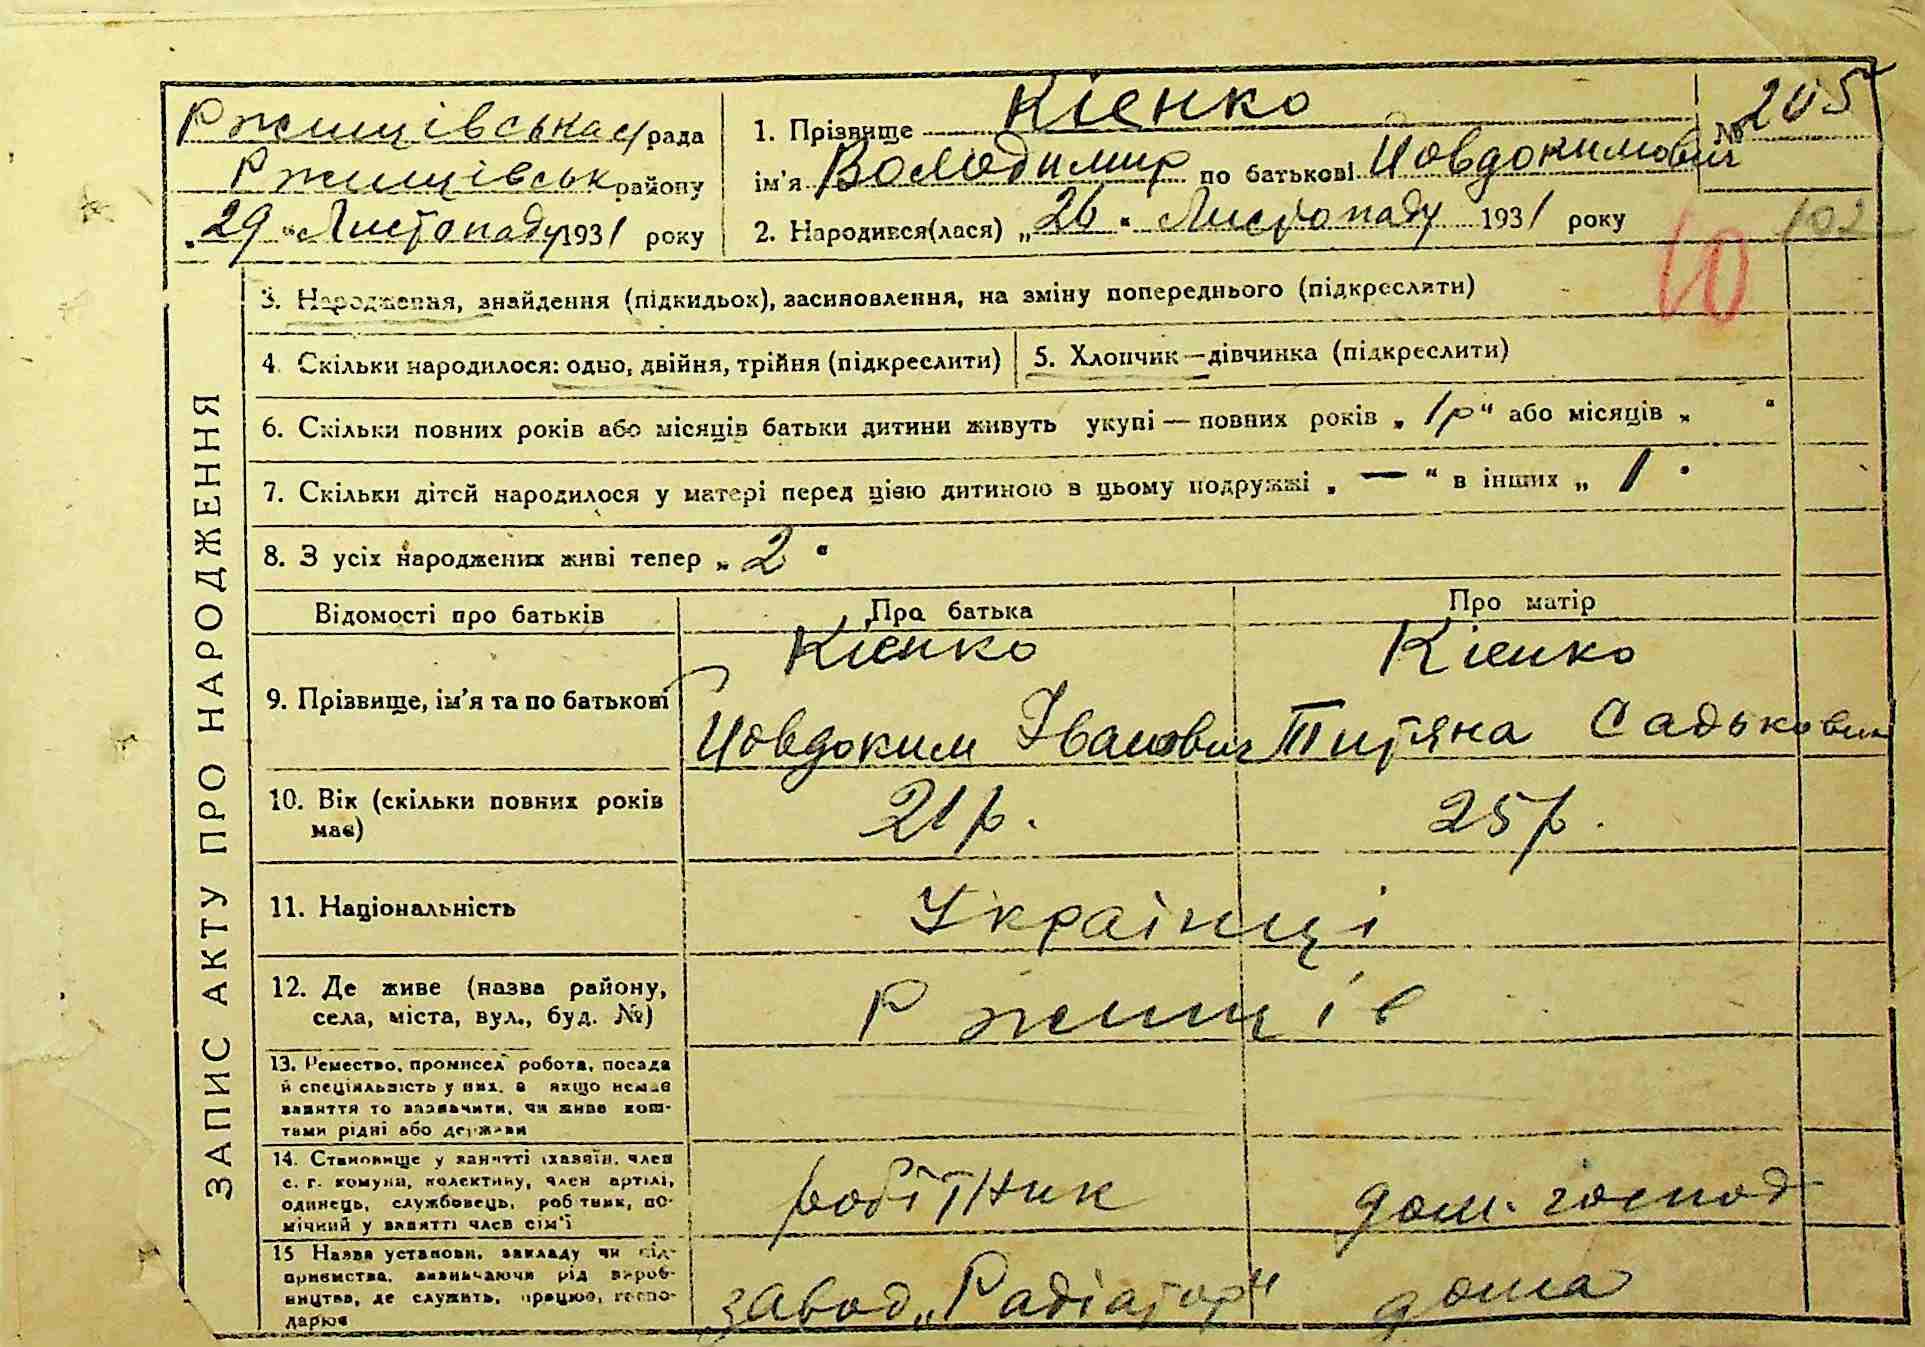 Ржищівська с/рада
Ржищівськ району
„29“ Листопаду 1931 року
1. Прізвище Кієнко
№ 205
ім'я Володимир по батькові Йовдокимович
2. Народився(лася) „26“ Листопаду 1931 року
102
10
ЗАПИС АКТУ ПРО НАРОДЖЕННЯ
3. Народження, знайдення (підкидьок), засиновлення, на зміну попереднього (підкреслити)
4. Скільки народилося: одно, двійня, трійня (підкреслити)
5. Хлопчик—дівчинка (підкреслити)
6. Скільки повних років або місяців батьки дитини живуть укупі — повних років „1р“ або місяців „ “
7. Скільки дітей народилося у матері перед цією дитиною в цьому подружжі „—“ в інших „1“
8. З усіх народжених живі тепер „2“
Відомості про батьків
Про батька
Про матір
9. Прізвище, ім'я та по батькові
Кієнко
Йовдоким Іванович
Кієнко
Титяна Садькович
10. Вік (скільки повних років
має)
21р.
25р.
11. Національність
Українці
12. Де живе (назва району,
села, міста, вул., буд. №)
Ржищів
13. Ремество, промисел робота, посада
й спеціяльність у них, а якщо немає
заняття то зазначити, чи живе кош-
тами рідні або держави
14. Становище у занятті (хазяїн, член
с. г. комуни, колективу, член артілі,
одинець, службовець, робітник, по-
мічний у занятті член сім'ї
робітник
дом. господ
15 Назва установи, закладу чи під-
приємства, визначаючи рід вироб-
ництва, де служить, працює, госпо-
дарює
завод „Радіатор“
дома